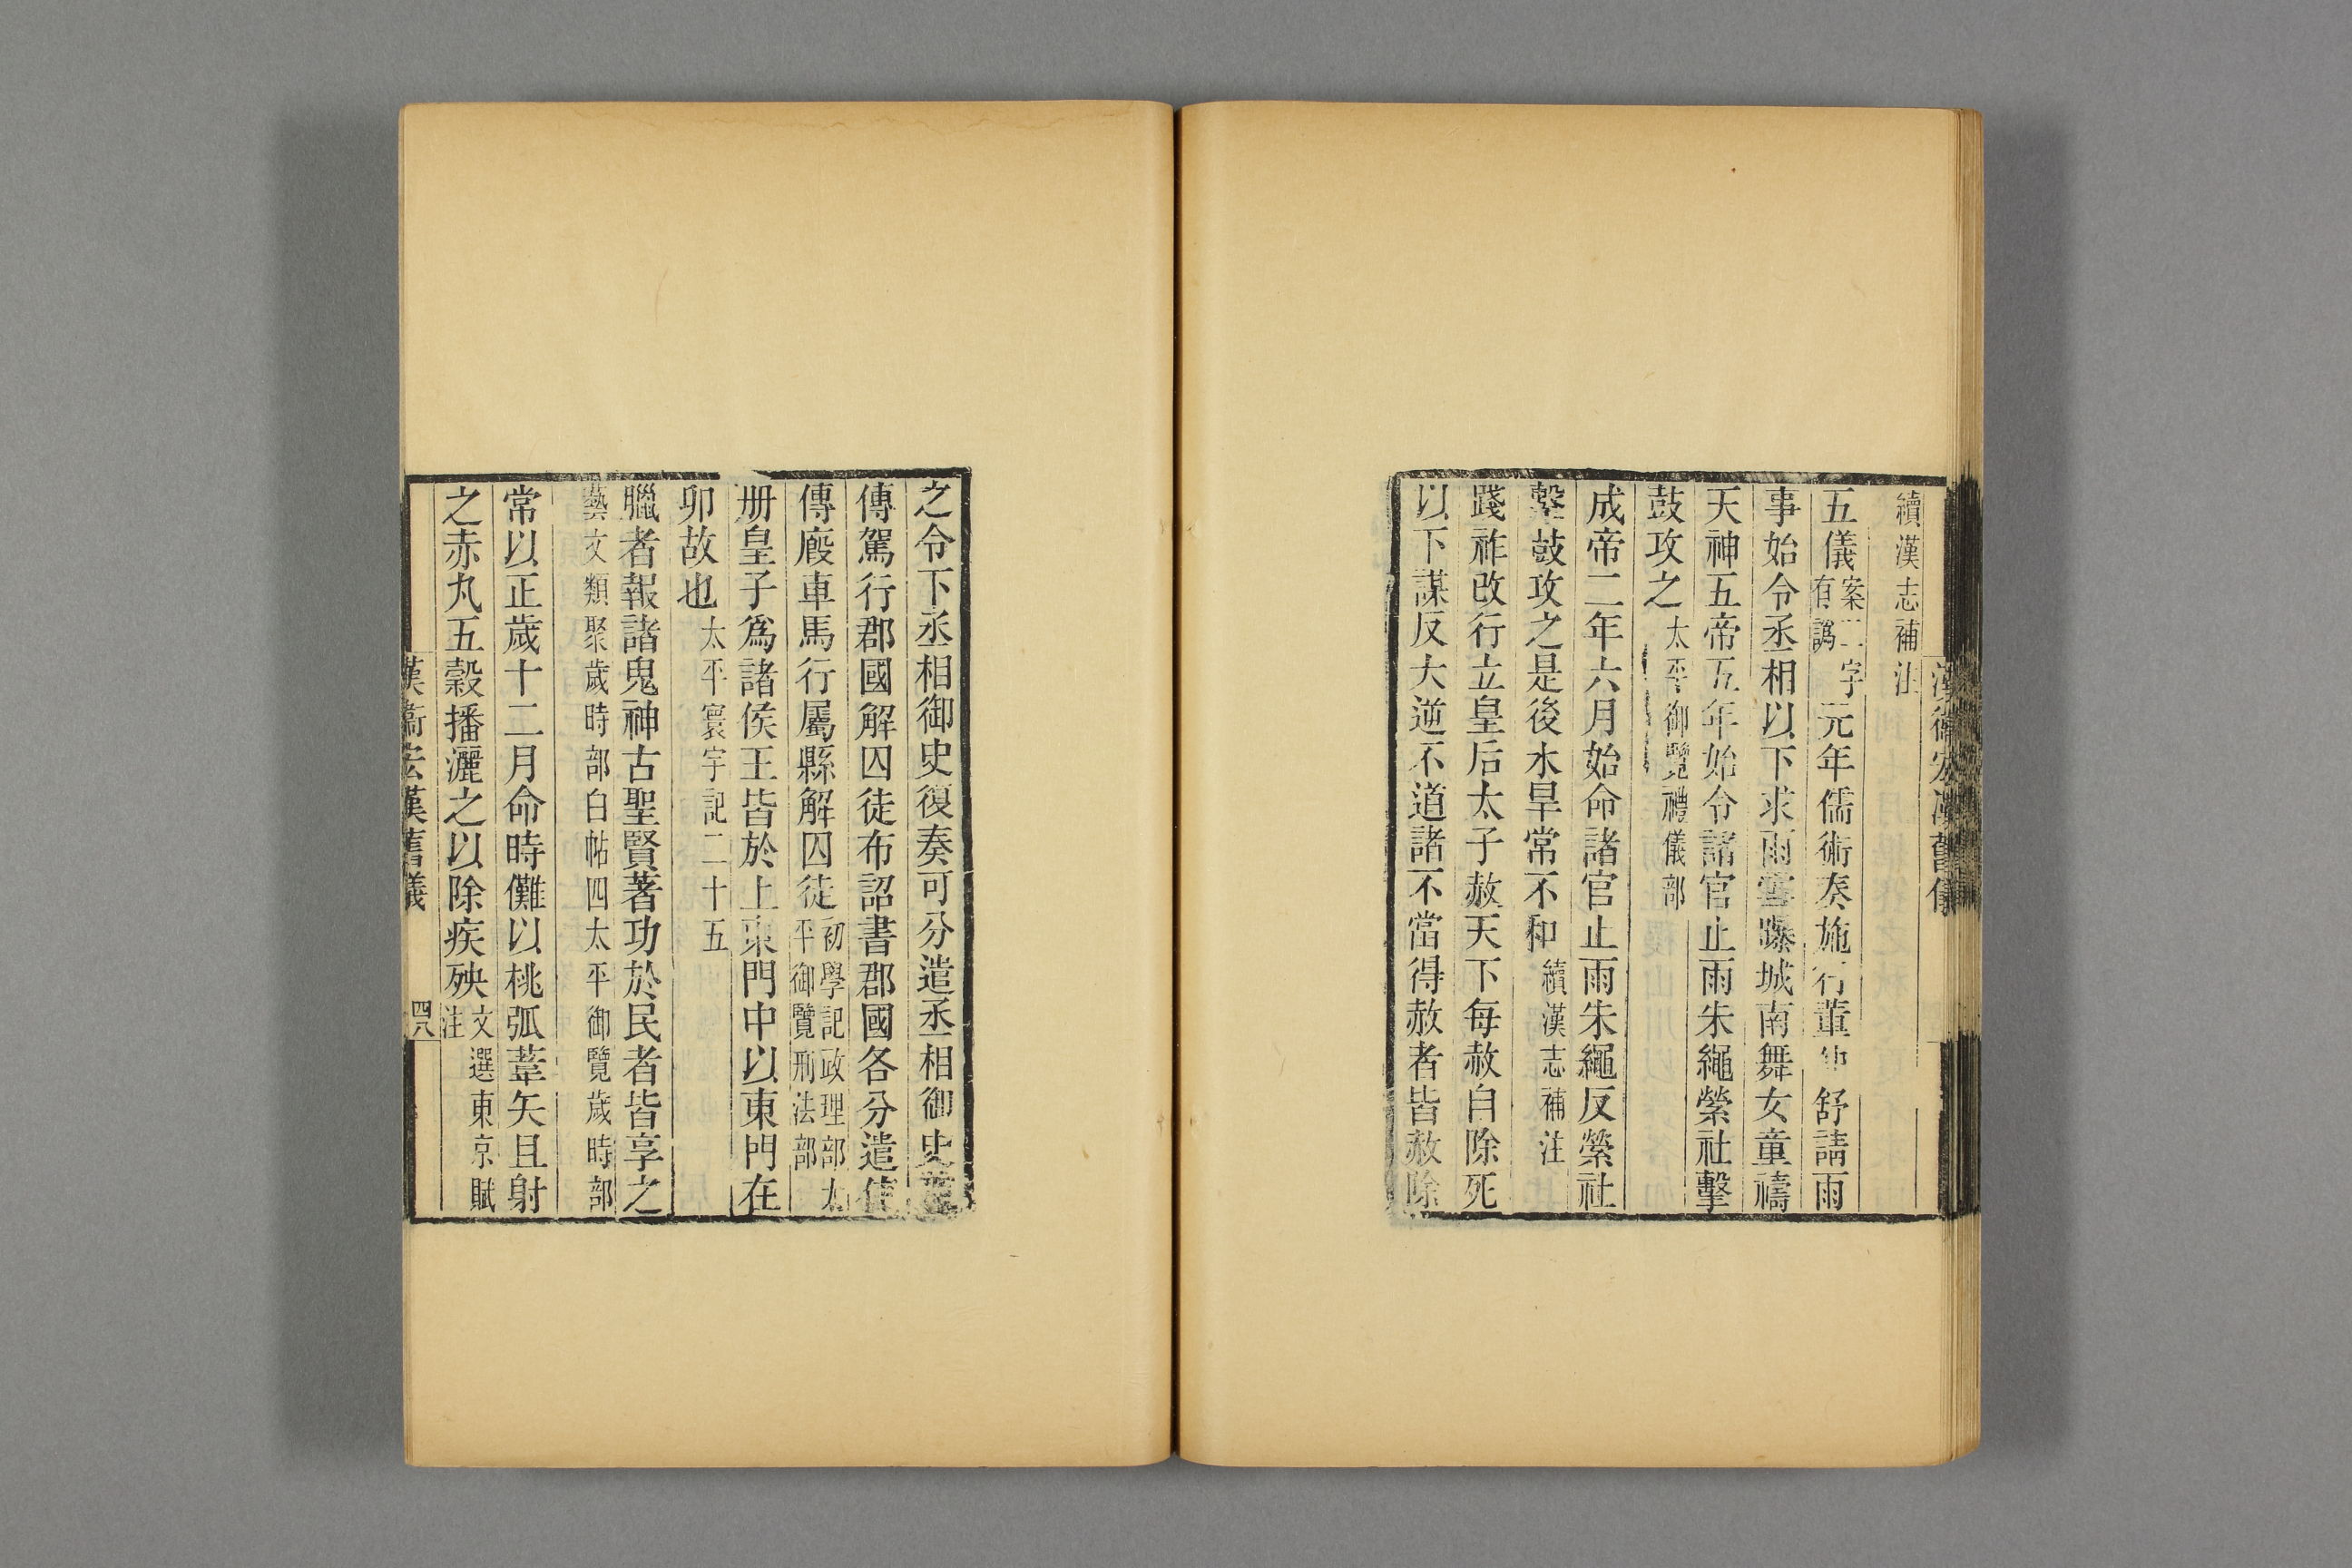 漢衛宏漢舊儀
續漢志補注
五儀案二字有譌元年儒術奏施行董仲舒請雨
事始令丞相以下求雨雪曝城南舞女童禱
天神五帝五年始令諸官止雨朱繩縈社擊
鼓攻之太平御覽禮儀部
成帝二年六月始命諸官止雨朱繩反縈社
擊鼓攻之是後水旱常不和續漢志補注
踐祚改行立皇后太子赦天下每赦自除死
以下謀反大逆不道諸不當得赦者皆赦除
之令下丞相御史復奏可分遣丞相御史
傳駕行郡國解囚徒布詔書郡國各分遣使
傳廄車馬行屬縣解囚徒初學記政理部太平御覽刑法部
册皇子爲諸侯王皆於上東門中以東門在
卯故也太平寰宇記二十五
臘者報諸鬼神古聖賢著功於民者皆享之
藝文類聚歲時部白帖四太平御覽歲時部
常以正歲十二月命時儺以桃弧葦矢且射
之赤丸五穀播灑之以除疾殃文選東京賦注
漢衛宏漢舊儀
四八